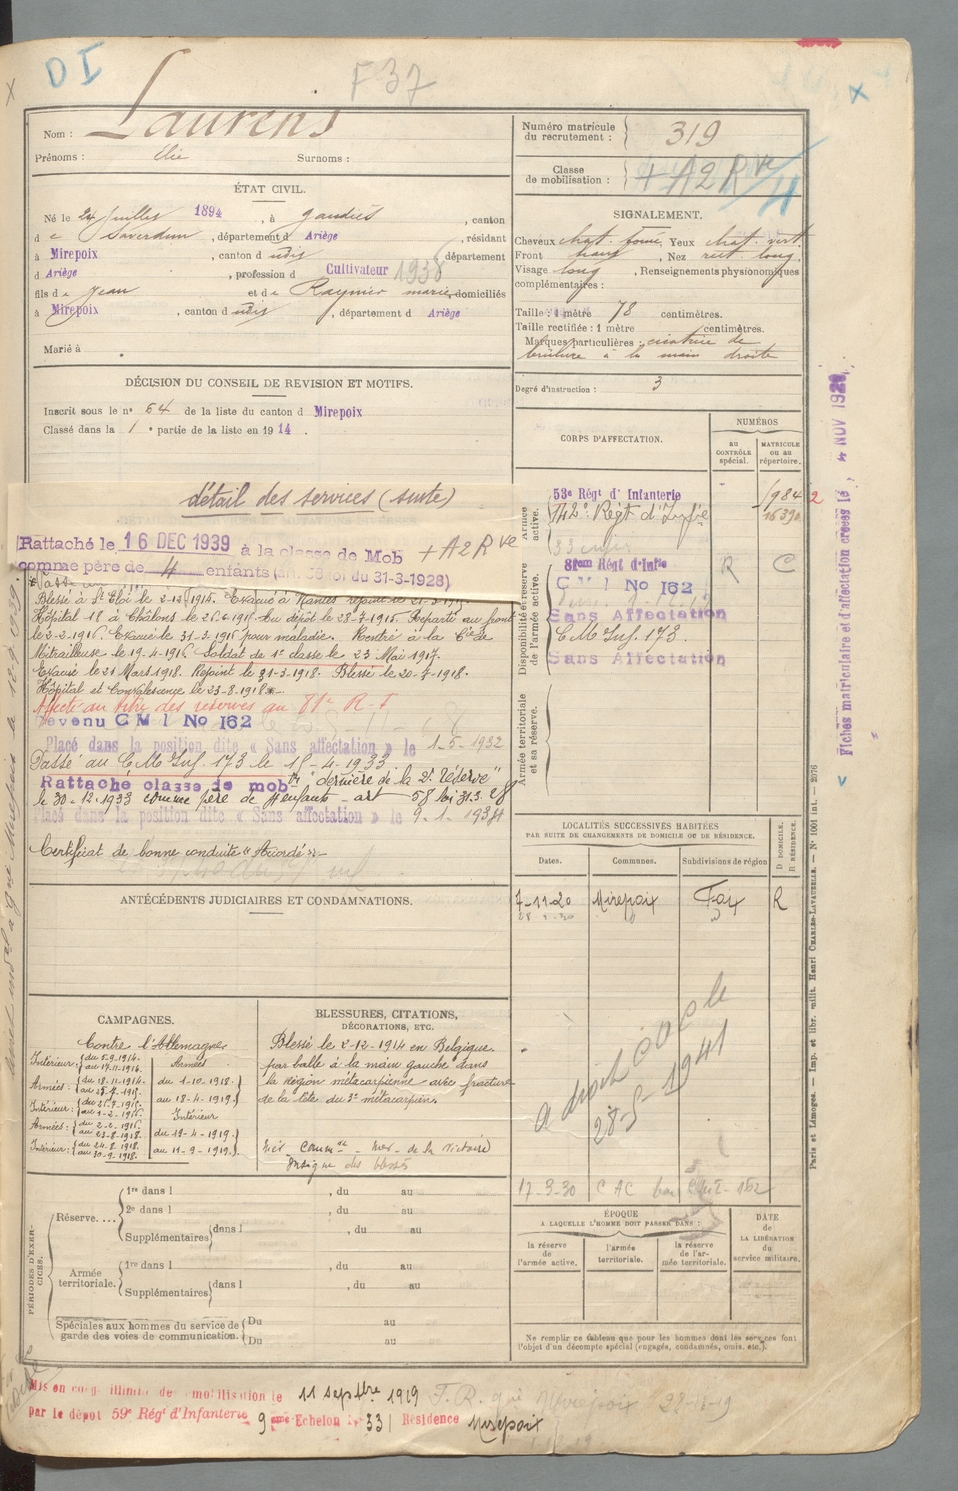 DI
F37
Nom : Laurens
Prénoms : Elie Surnoms :
Numéro matricule du recrutement : 319
Classe de mobilisation : + A2 Rve /4
ÉTAT CIVIL.
Né le 24 Juillet 1894, à Gaudiès, canton
de Saverdun, département d Ariège, résidant
à Mirepoix, canton d udit département
d Ariège, profession d Cultivateur 1938
fils de Jean et de Raynier marie, domiciliés
à Mirepoix, canton d udit, département d Ariège
Marié à
SIGNALEMENT.
Cheveux chat. foncé, Yeux chat. vert.
Front, Nez rect. long.
Visage long, Renseignements physionomiques
complémentaires :
Taille : 1 mètre 78 centimètres.
Taille rectifiée : 1 mètre centimètres.
Marques particulières : cicatrice de
brûlure à la main droite
Degré d'instruction : 3
DÉCISION DU CONSEIL DE REVISION ET MOTIFS.
Inscrit sous le n° 64 de la liste du canton d Mirepoix
Classé dans la 1e partie de la liste en 1914.
détail des services (suite)
Rattaché le 16 DEC 1939 à la classe de Mob + A2 Rve
comme père de 4 enfants (art. 58 loi du 31-3-1928)
Blessé à St Eloi le 2-12-1914. Evacué à Nantes rejoint le 21-3-1915.
Hôpital 18 à Châlons le 26-6-1915. Au dépôt le 28-7-1915. Reparti au front
le 2-2-1916. Evacué le 31-3-1916 pour maladie. Rentré à la Cie de
Mitrailleuse le 19-4-1916. Soldat de 1e classe le 23 Mai 1917.
Evacué le 21 Mars 1918. Rejoint le 31-3-1918. Blessé le 20-7-1918.
Hôpital et Convalescence le 23-8-1918.
Affecté au titre des réserves au 81e R-I
Devenu C M I No 162
Placé dans la position dite « Sans affectation » le 1-5-1932
Passé au C M Inf. 173 le 15-4-1933
Rattaché classe de mob tn "dernière de la 2e réserve"
le 30-12-1933 comme père de 4 enfants - art 58 loi 31.3.28
Placé dans la position dite « Sans affectation » le 9-1-1934
Certificat de bonne conduite « Accordé »
ANTÉCÉDENTS JUDICIAIRES ET CONDAMNATIONS.
CORPS D'AFFECTATION.
NUMÉROS
au CONTRÔLE spécial.
MATRICULE ou au répertoire.
Armée active.
53e Régt d'Infanterie 1984
142e Régt d'Infie 16390
Disponibilité et réserve de l'armée active.
81em Régt d'Infie R C
C M I No 162
Sans Affectation
C M Inf. 173.
Sans Affectation
Armée territoriale et sa réserve.
LOCALITÉS SUCCESSIVES HABITÉES
PAR SUITE DE CHANGEMENTS DE DOMICILE OU DE RÉSIDENCE.
Dates. Communes. Subdivisions de région D DOMICILE. R RÉSIDENCE.
7-11-20 Mirepoix Foix R
28-5-1941
17-3-30 CMI-162
CAMPAGNES.
Contre l'Allemagne
Intérieur : du 5-9-1914. au 17-11-1914.
Armées : du 18-11-1914. au 25-7-1915.
Intérieur : du 26-7-1915. au 1-2-1916.
Armées : du 2-2-1916. au 23-8-1918.
Intérieur : du 24-8-1918. au 30-9-1918.
Armées
du 1-10-1918.
au 18-4-1919.
Intérieur
du 19-4-1919.
au 11-9-1919.
BLESSURES, CITATIONS,
DÉCORATIONS, ETC.
Blessé le 2-12-1914 en Belgique.
par balle à la main gauche dans
la région métacarpienne avec fracture
de la tête du 3e métacarpien.
Méd. Commve - Med. de la Victoire
Insigne des blessés
PÉRIODES D'EXERCICES.
Réserve.... 1re dans l , du au
2e dans l , du au
Supplémentaires dans l , du au
Armée territoriale. 1re dans l , du au
Supplémentaires dans l , du au
Spéciales aux hommes du service de garde des voies de communication. Du au
Du au
ÉPOQUE
A LAQUELLE L'HOMME DOIT PASSER DANS :
la réserve de l'armée active.
l'armée territoriale.
la réserve de l'armée territoriale.
DATE de LA LIBÉRATION du service militaire.
Ne remplir ce tableau que pour les hommes dont les services font
l'objet d'un décompte spécial (engagés, condamnés, omis, etc.).
Mis en congé illimité de démobilisation le 11 septbre 1919
par le dépôt 59e Régt d'Infanterie 9eme Echelon N° 331 Résidence Mirepoix
Fiches matriculaire et d'affectation créées le 4 NOV 1929
Paris et Limoges. — Imp. et libr. milit. Henri CHARLES-LAVAUZELLE. — N° 1001 int. — 2076